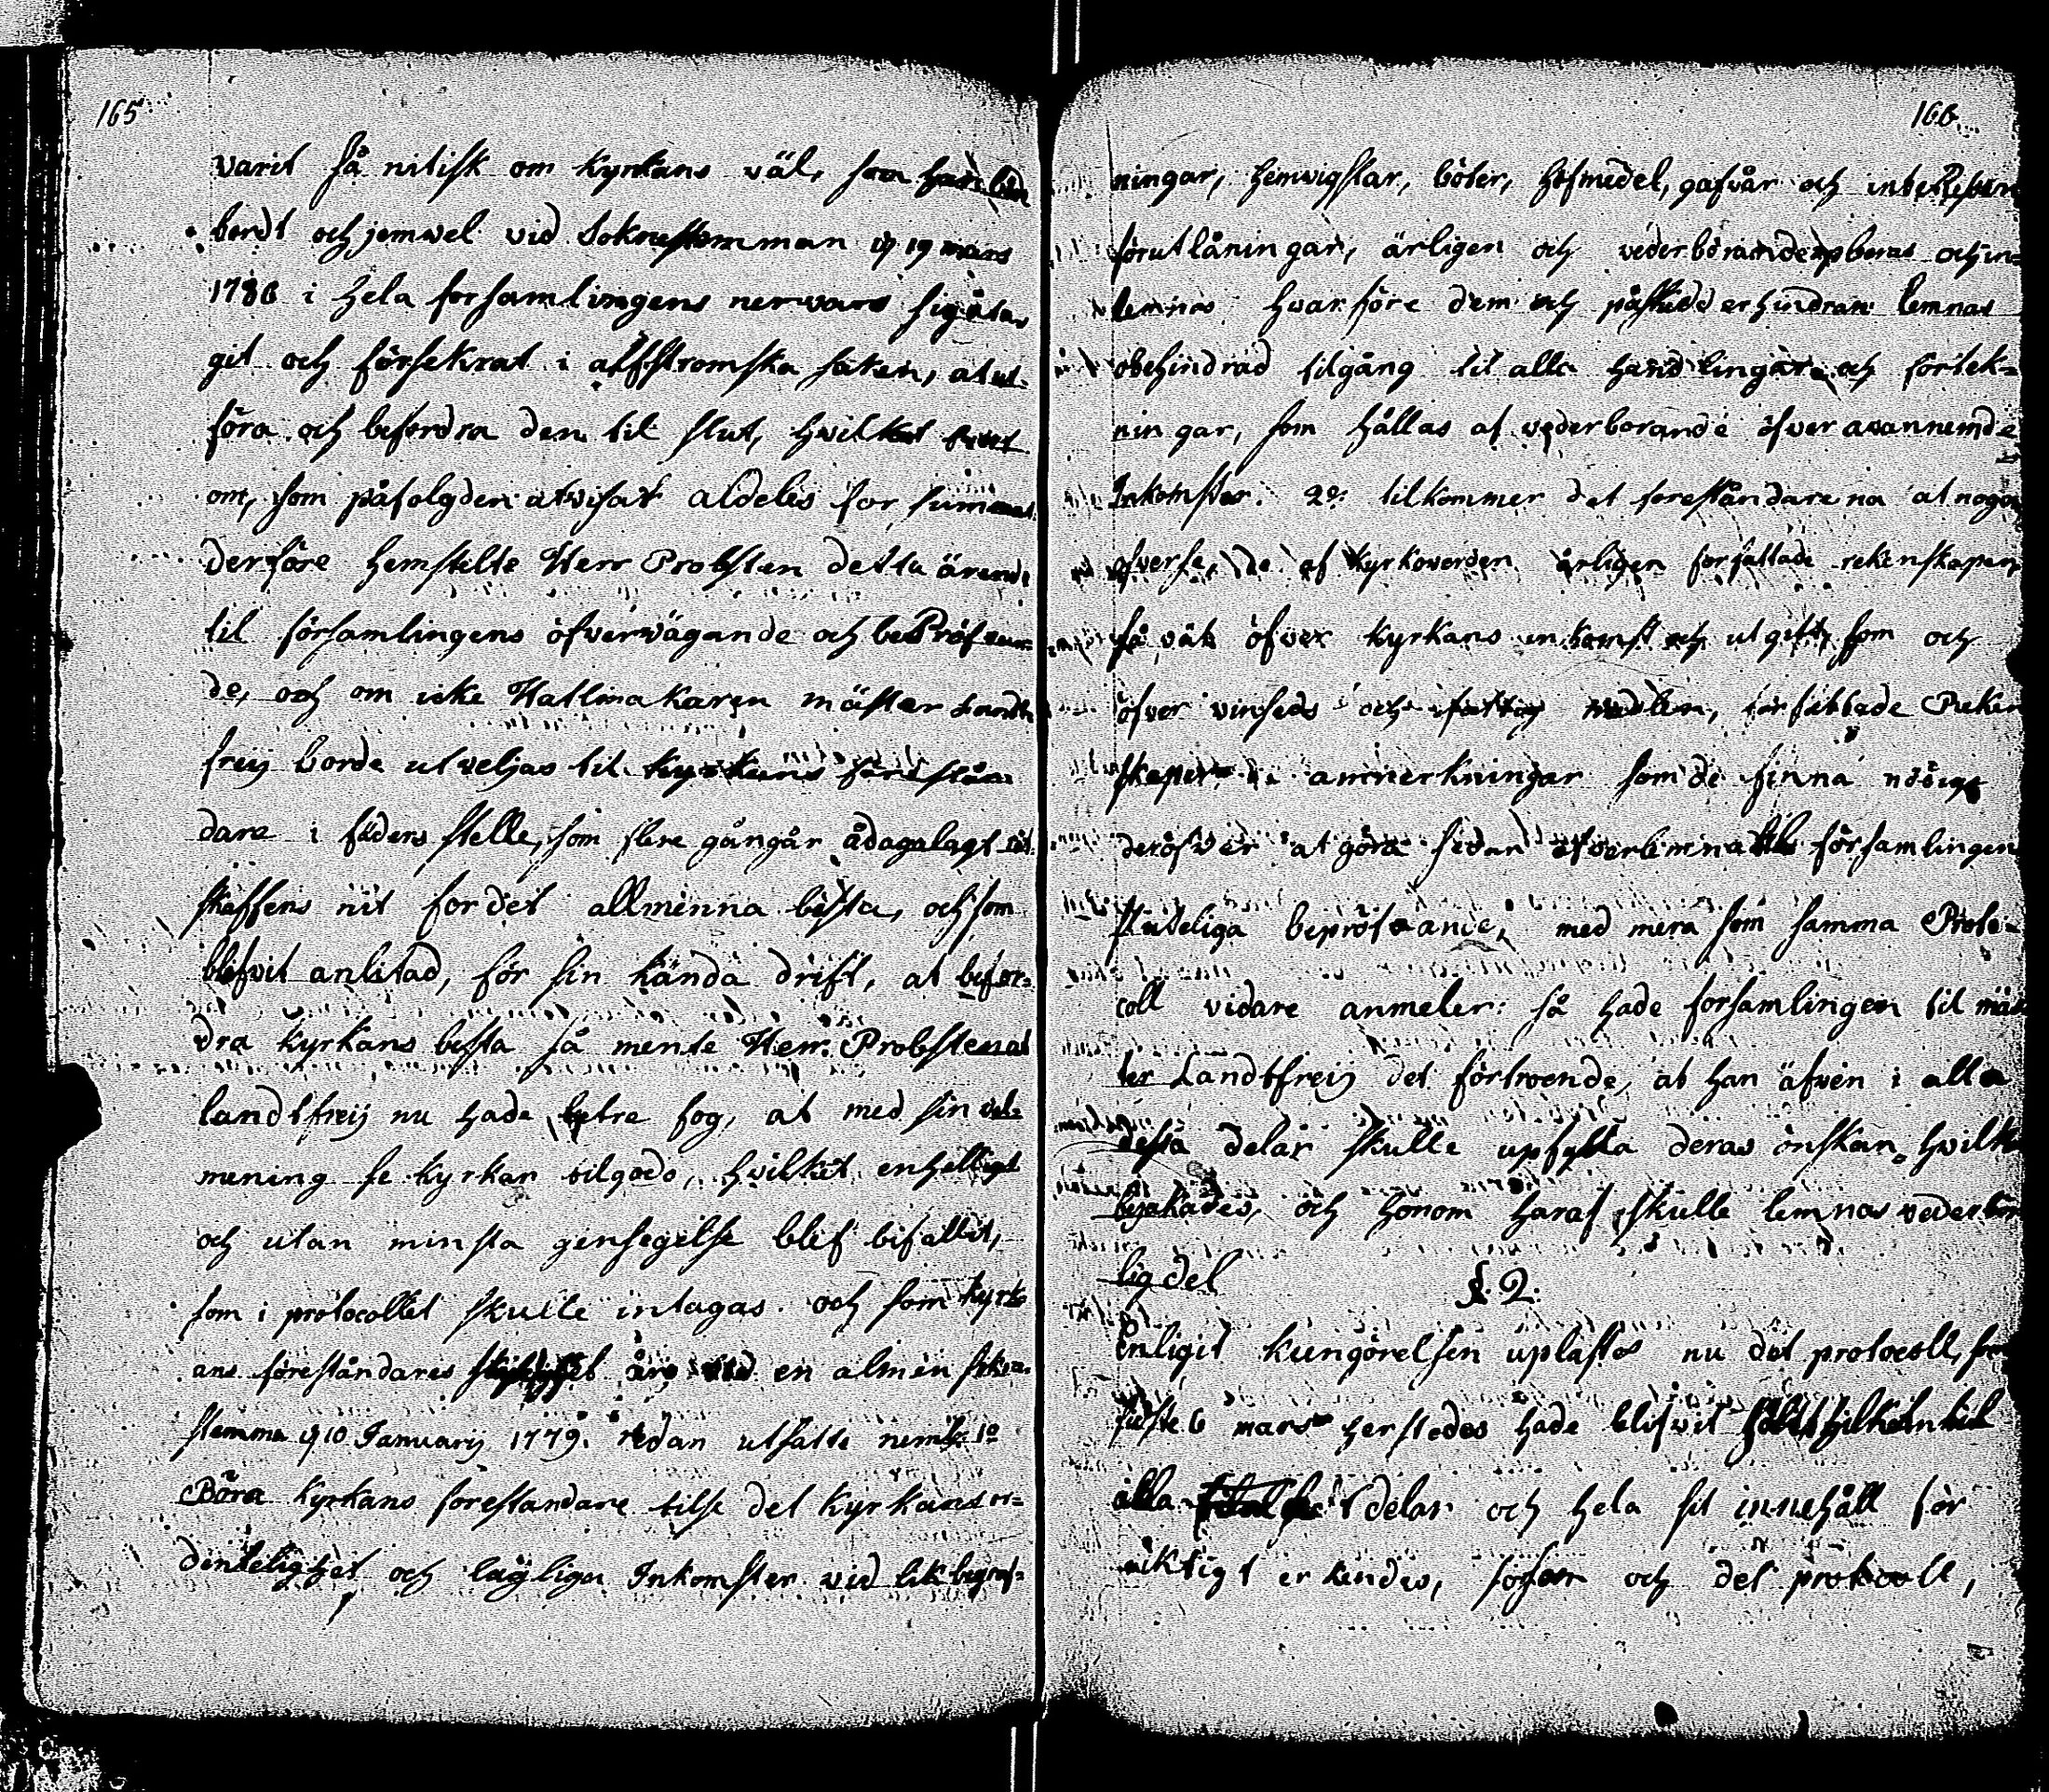 165
varit så nitisk om kyrkans väl, som han
bordt och jemwel vid Soknestemman d 19 mars
1786 i hela forsamlingens nervaro sig åta-
git och försekrat i alfstromska saken, at ut-
föra och befordra den til slut, hvilket
om, som påfolgden utvisat aldeles for summat
derföre hemstelte Herr Probsten detta ärende
til församlingens öfvervägande och bepröfvan-
de, och om icke Hattmakaren mäster Landt
freij borde utveljas til kyrkans förestån-
dare i faders stelle, som flere gångår ådagalagt
skaffens nit for det allmenna besta, och som
blefvit anlitad, för sin kända drift, at befor-
dra kyrkans besta så mente Herr Probsten at
landtfreij nu hade betre fog, at med sin vel-
mening se kyrkan tilgodo, hvilket enhelligt
och utan minsta gensegelse blef bifallit,
som i protocollet skulle intagas. och som kyrk-
ans föreståndares åro vid en almen sokne-
stemma d 10 Januarij 1779. redan utsatte neml: 1o
Böra kyrkans forestandare tilse det kyrkans or-
dentelighet och lagliga Inkomster vid likbegraf-
166
ningar, hemvigslar, böter, håfmedel, gafvår och
förutlåningar, ärligen och vederbörande och in-
lemnas hvarföre dem och lemnas
obehindrad tilgång til alla handlingar och fortek-
ningar, som hållas af vederborande öfver avannemde
Inkomster. 2o. tilkommer det forestandarena at noga
ofverse, de af kyrkoverden årligen forfattade rekenskaper
så väl öfver kyrkans inkomst och utgift, som och
öfver vinseds och fattig medlen, forfattade Reken
skaper de anmerkningar som de finna nödigt
deröfver at göra sedan öfverlemna til församlingens
sluteliga bepröfvande, med mera som samma Proto-
coll vidare anmeler: så hade forsamlingen til mäs
ter Landtfreij det förtroende, at han äfven i alla
dessa delar skulle upfylla deras önskan, hvilket
bejakades, och honom haraf skulle lemnas vederbör
lig del
§. 2.
Enligit kungörelsen uplästes nu det protocoll, som
sidste 6 mars herstedes hade blifvit
alla delar och hela sit innehåll för
riktigt erkendes, och det protocoll,